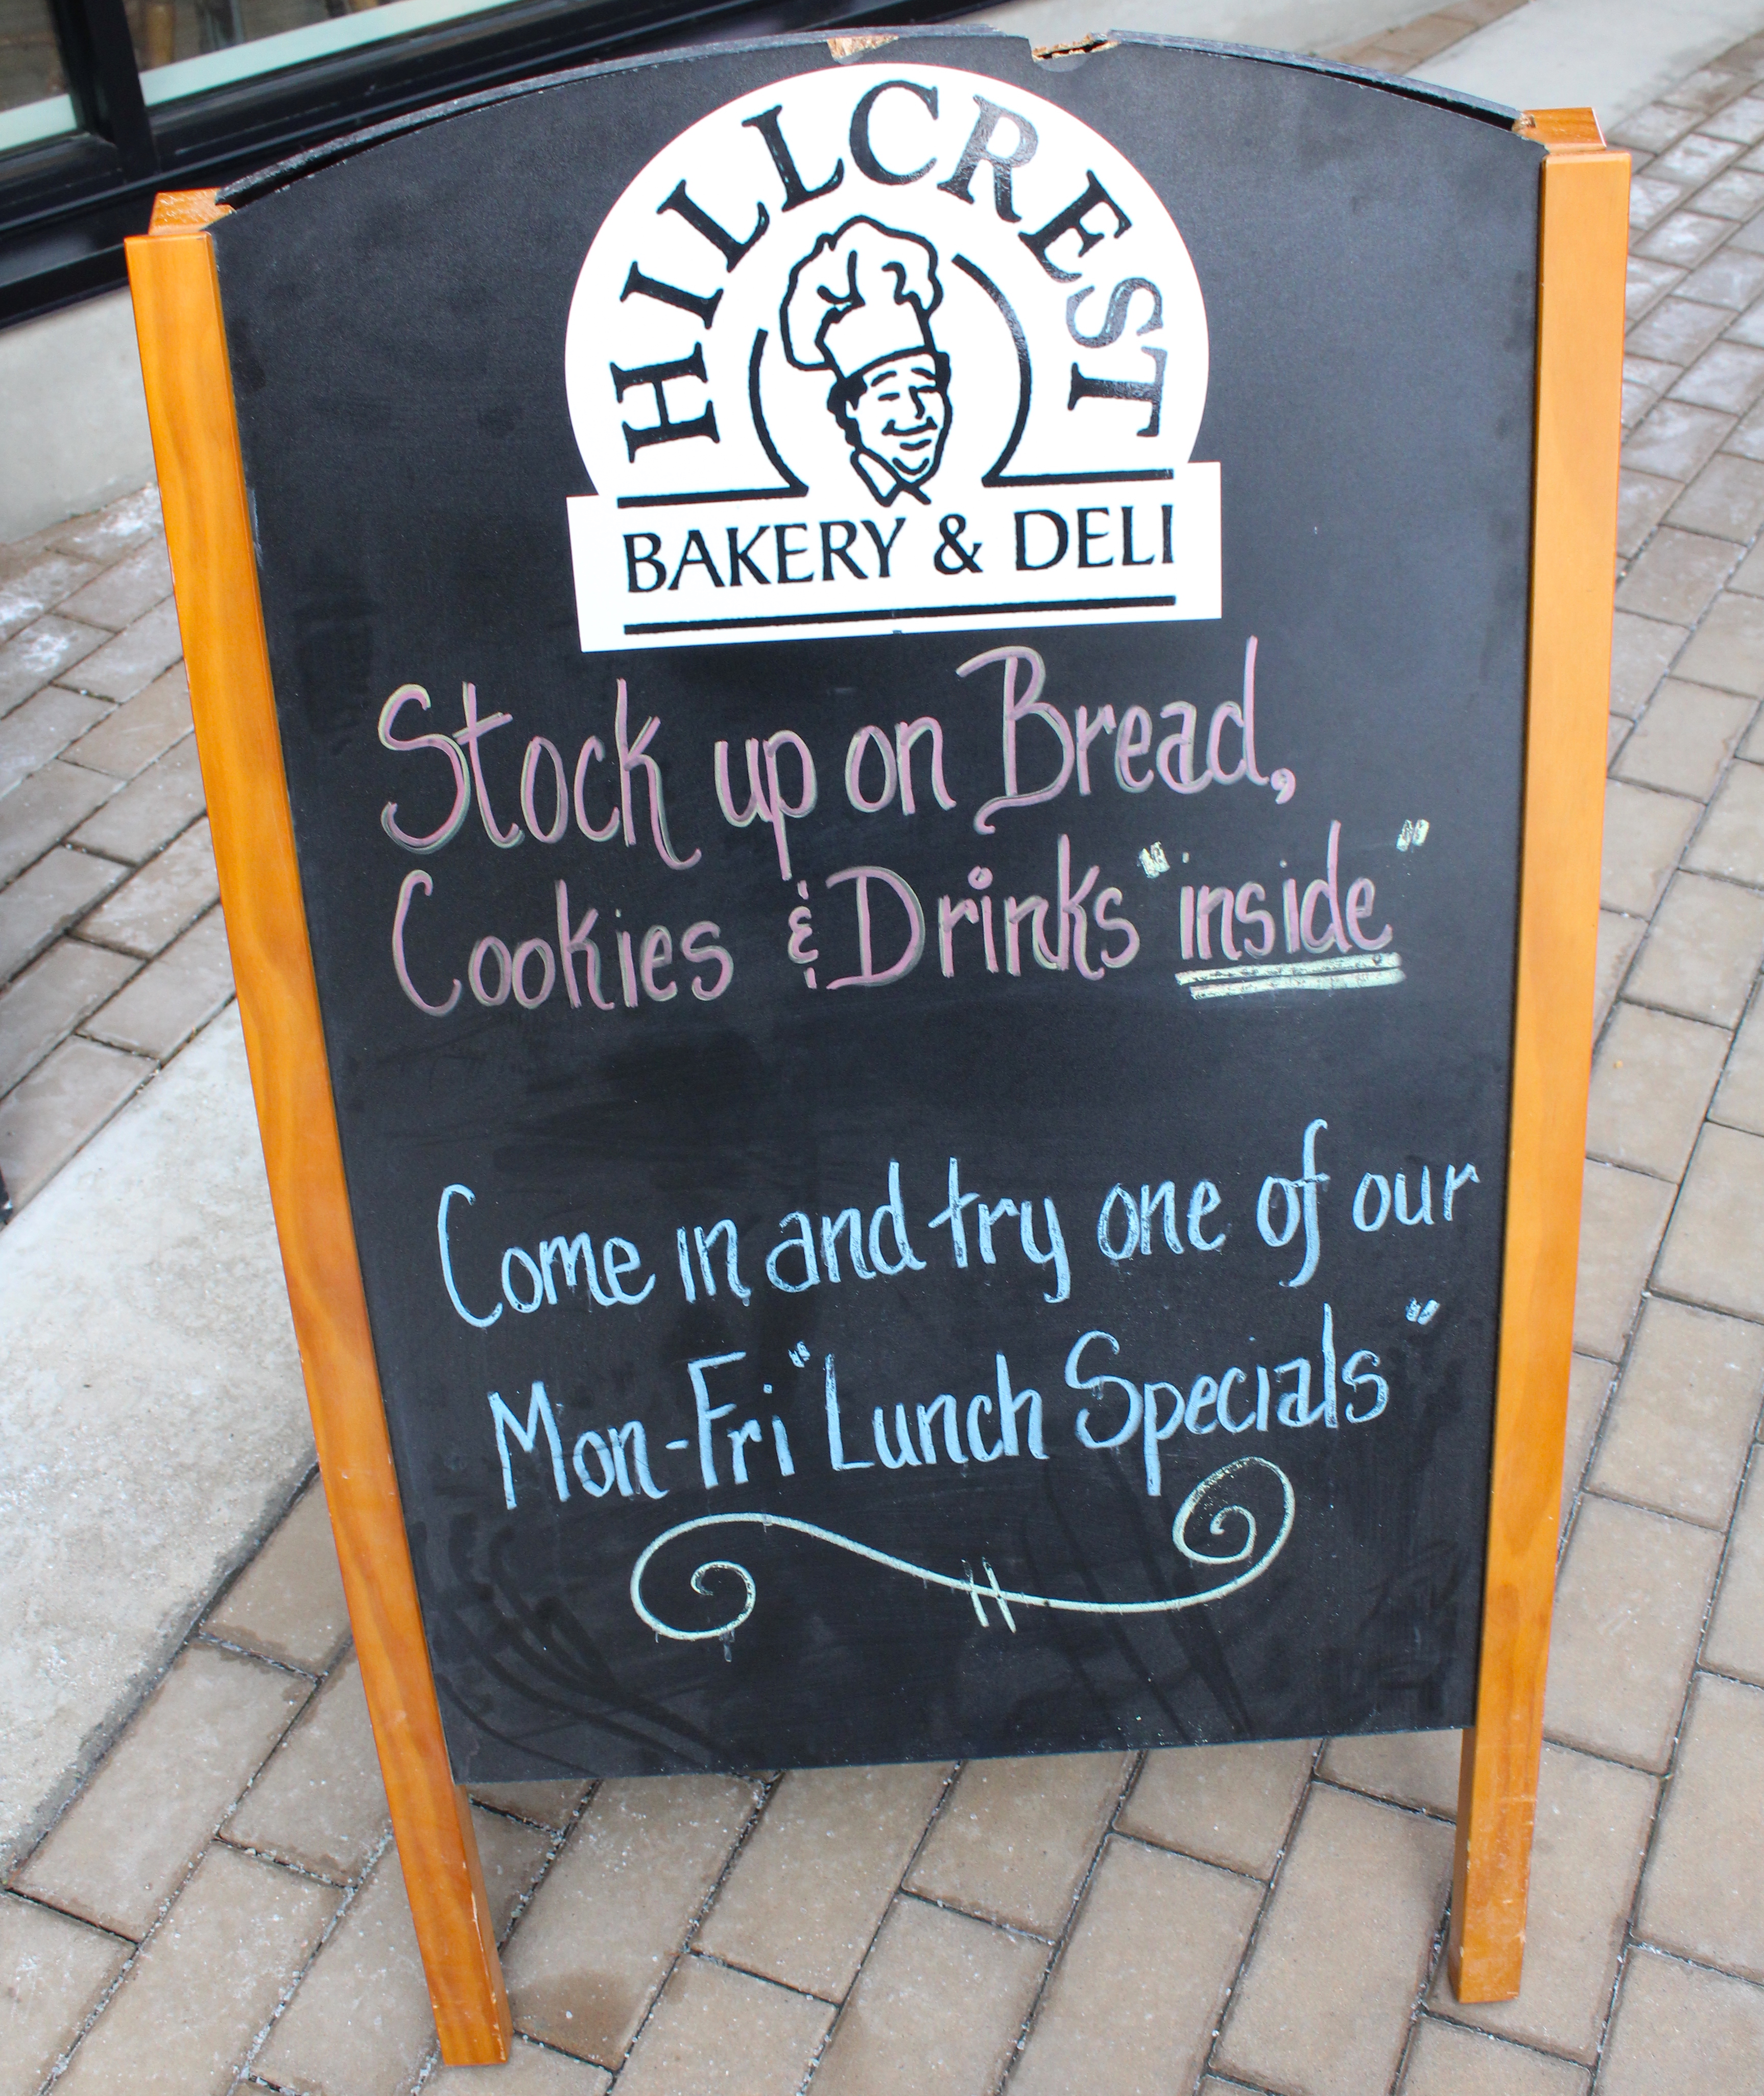 HILLCREST
BAKERY & DELI
Stock up on Bread,
Cookies & Drinks "inside"
Come in and try one of our
Mon-Fri "Lunch Specials"